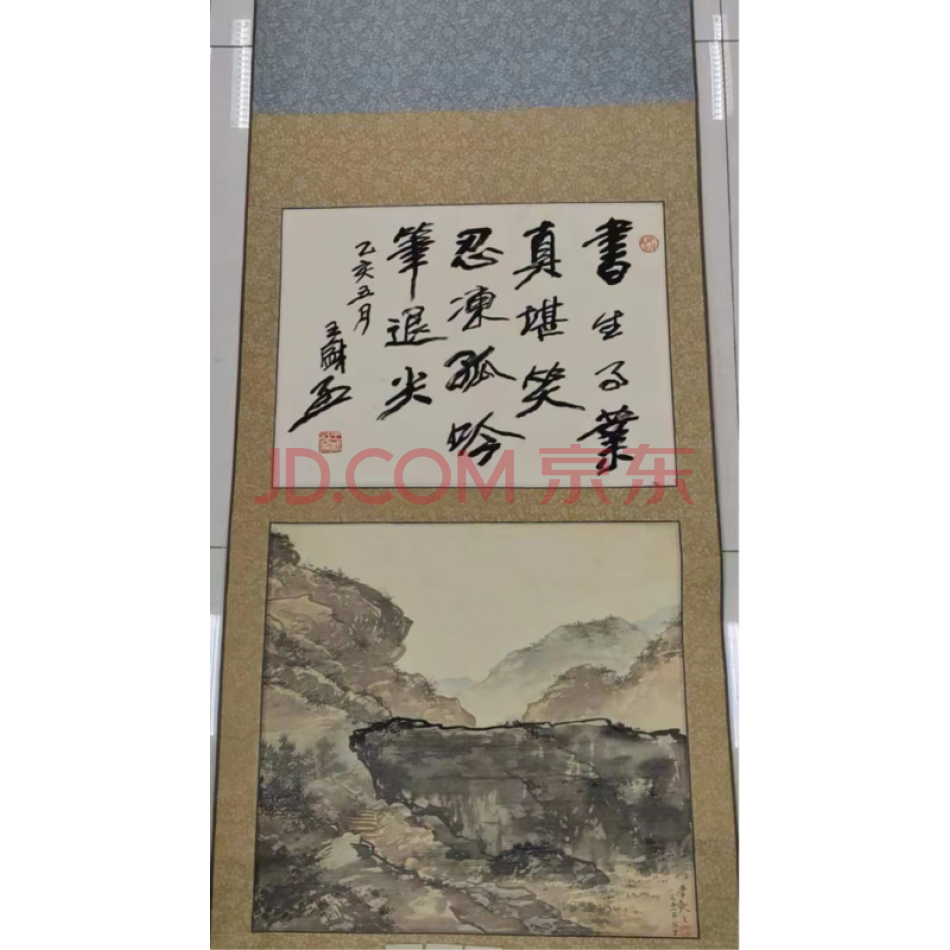 書生事業
真堪笑
忍凍孤吟
筆退尖
乙亥五月
JD.COM 京东